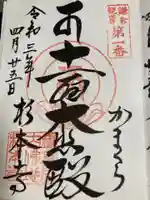 鎌倉
観音
第一番
かまくら
十一面大悲殿
令和三年
四月廿五日
杉本寺